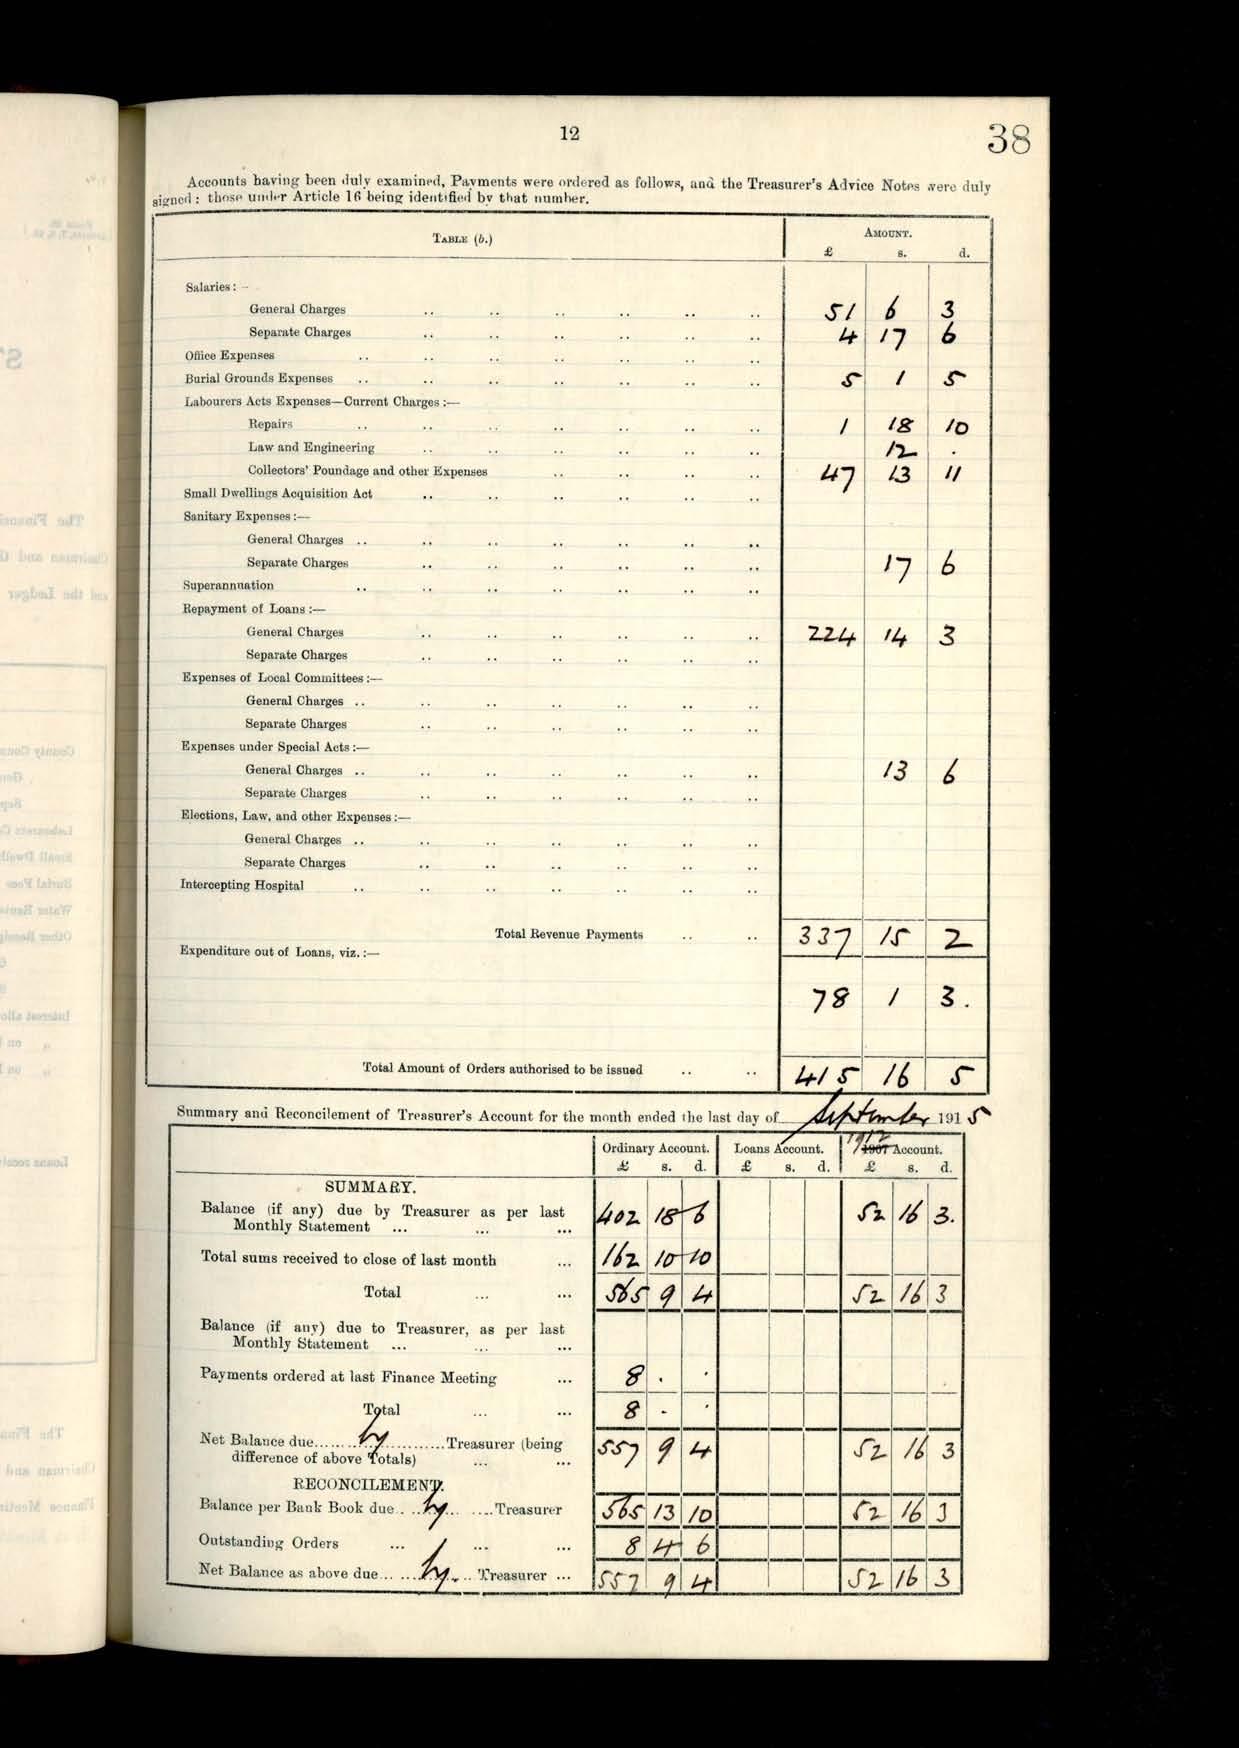 12
38
Accounts having been duly examined, Payments were ordered as follows, and the Treasurer's Advice Notes were duly
signed: those under Article 16 being identified by that number.
TABLE (b.) AMOUNT.
£ s. d.
Salaries:—
General Charges .. .. .. .. .. .. 51 6 3
Separate Charges .. .. .. .. .. .. 4 17 6
Office Expenses .. .. .. .. .. .. ..
Burial Grounds Expenses .. .. .. .. .. .. .. 5 1 5
Labourers Acts Expenses—Current Charges:—
Repairs .. .. .. .. .. .. .. 1 18 10
Law and Engineering .. .. .. .. .. .. 12 .
Collectors' Poundage and other Expenses .. .. .. .. 47 13 11
Small Dwellings Acquisition Act .. .. .. .. .. ..
Sanitary Expenses:—
General Charges .. .. .. .. .. .. ..
Separate Charges .. .. .. .. .. .. 17 6
Superannuation .. .. .. .. .. .. ..
Repayment of Loans:—
General Charges .. .. .. .. .. .. 224 14 3
Separate Charges .. .. .. .. .. ..
Expenses of Local Committees:—
General Charges .. .. .. .. .. .. ..
Separate Charges .. .. .. .. .. ..
Expenses under Special Acts:—
General Charges .. .. .. .. .. .. .. 13 6
Separate Charges .. .. .. .. .. ..
Elections, Law, and other Expenses:—
General Charges .. .. .. .. .. .. ..
Separate Charges .. .. .. .. .. ..
Intercepting Hospital .. .. .. .. .. .. ..
Total Revenue Payments .. .. 337 15 2
Expenditure out of Loans, viz.:—
78 1 3.
Total Amount of Orders authorised to be issued .. .. 415 16 5
Summary and Reconcilement of Treasurer's Account for the month ended the last day of September 1915
1912
Ordinary Account. Loans Account. 1907 Account.
£ s. d. £ s. d. £ s. d.
SUMMARY.
Balance (if any) due by Treasurer as per last
Monthly Statement ... ... ... 402 18 6 52 16 3.
Total sums received to close of last month ... 162 10 10
Total ... ... 565 9 4 52 16 3
Balance (if any) due to Treasurer, as per last
Monthly Statement ... ... ...
Payments ordered at last Finance Meeting ... 8 . .
Total ... ... 8 - .
Net Balance due by Treasurer (being
difference of above Totals) ... ... 557 9 4 52 16 3
RECONCILEMENT.
Balance per Bank Book due by Treasurer 565 13 10 52 16 3
Outstanding Orders ... ... ... 8 4 6
Net Balance as above due by Treasurer ... 557 9 4 52 16 3